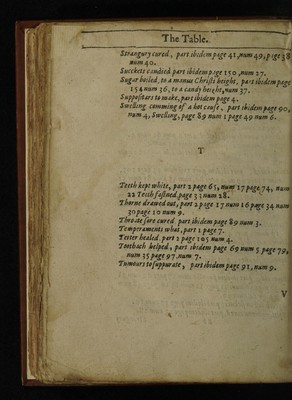 The Table.
Strangury cured, part ibidem page 41, num 49, page 38
num 40.
Succkets candied part ibidem page 150, num 27.
Sugar boiled, to a monus Christi height, part ibidem page
154 num 36, to a candy height, num 37.
Suppositars to make, part ibidem page 4.
Swelling comming of a hot cause, part ibidem page 90,
num 4, Swelling, page 89 num 1 page 49 num 6.
T
Teeth kept white, part 2 page 65, num 17 page, 74, num
22 Teeth fastned, page 33 num 28.
Thorne drawed out, part 2 page 17 num 16 page 34 num
30 page 10 num 9.
Throate sore cured. part ibidem page 89 num 3.
Tempraments what, part 1 page 7.
Tetter healed. part 2 page 105 num 4.
Toothach helped, part ibidem page 69 num 5 page 79,
num 35 page 97, num 7.
Tumours to suppurate, part ibidem page 91, num 9,
V